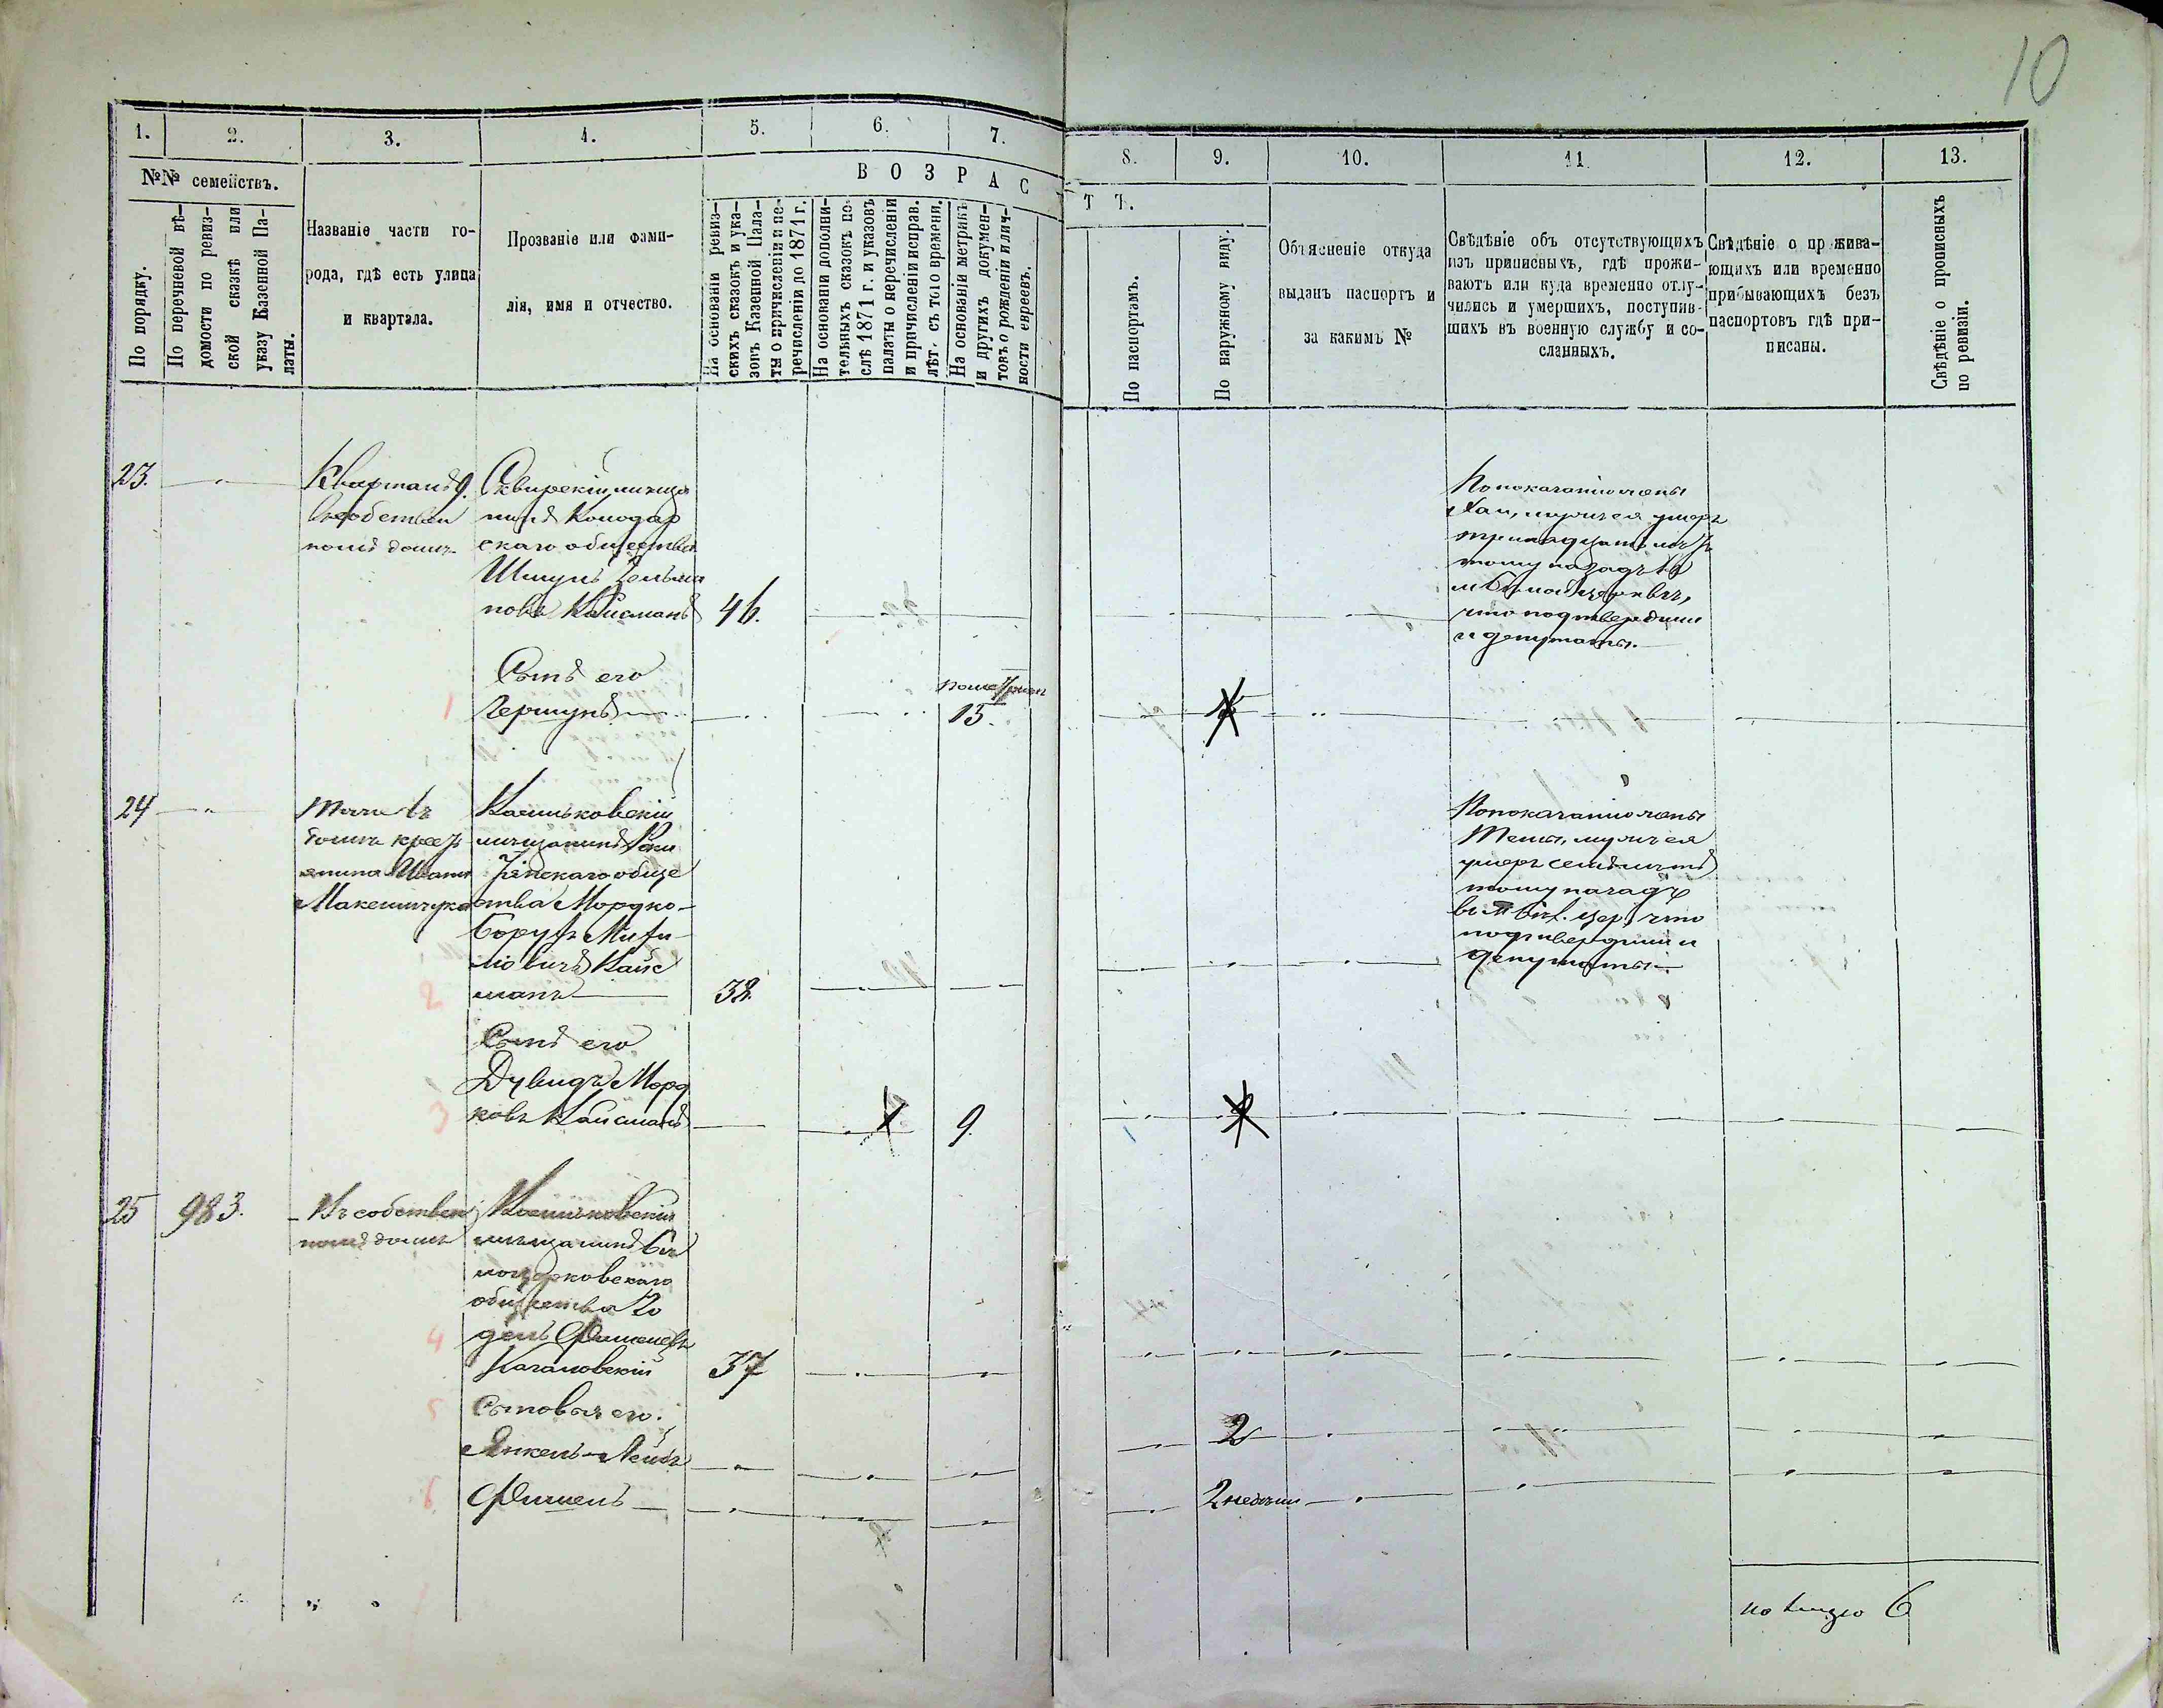 10
1.
2.
3.
4.
5.
6.
7.
8.
9.
10.
11
12.
13.
№№ семействъ.
По порядку.
По перечневой вѣ-
домости по ревиз-
ской сказкѣ или
указу Казенной Па-
латы.
Названіе части го-
рода, гдѣ есть улица
и квартала.
Прозваніе или фами-
лія, имя и отчество.
ВОЗРАС
ТЪ.
На основаніи ревиз-
скихъ сказокъ и ука-
зовъ Казенной Пала-
ты о причисленіи и пе-
речисленіи до 1871 г.
На основаніи дополни-
тельныхъ сказокъ по-
слѣ 1871 г. и указовъ
палаты о перечисленіи
и причисленіи исправ.
лѣт. съ того времени.
На основаніи метрикъ
и другихъ докумен-
товъ о рожденіи и лич-
ности евреевъ.
По паспортамъ.
По наружному виду.
Объясненіе откуда
выданъ паспортъ и
за какимъ №
Свѣдѣніе объ отсутствующихъ
изъ приписныхъ, гдѣ прожи-
ваютъ или куда временно отлу-
чились и умершихъ, поступив-
шихъ въ военную службу и со-
сланныхъ.
Свѣдѣніе о прожива-
ющихъ или временно
прибывающихъ безъ
паспортовъ гдѣ при-
писаны.
Свѣдѣніе о прописныхъ
по ревизіи.
23.
Кварталъ 9.
Въ собствен
номъ домѣ
Сквирскій мѣща
нинъ Володар
скаго общества
Шмуль
новъ Кайсманъ
46.
По показанію жены
мужъ ея умеръ
тринадцать лѣтъ
тому назадъ въ
м. Бѣлой Церквѣ,
что подтвердили
и депутаты.
Сынъ его
1
Гершунъ
15.
24
домѣ крест
янина Ивана
Васильковскій
мѣщанинъ
обще
ства Мордко-
Борухъ
ловичъ Кайс
2
манъ
38.
По показанію жены
мужъ ея
умеръ семь лѣтъ
тому назадъ
въ м. Бѣл. Цер. что
подтвердили и
депутаты.
Сынъ его
Дувидъ Морд
3
ковъ Кайсманъ
9.
25
983.
Въ собствен
номъ домѣ
Васильковскій
мѣщанинъ Бѣ
лоцерковскаго
общества Іо
4
дель Фишелевъ
Кагановскій
37
5
Сыновья его.
Янкель-Лейбъ
2
6
Фишель
2 недѣли
на лицо 6